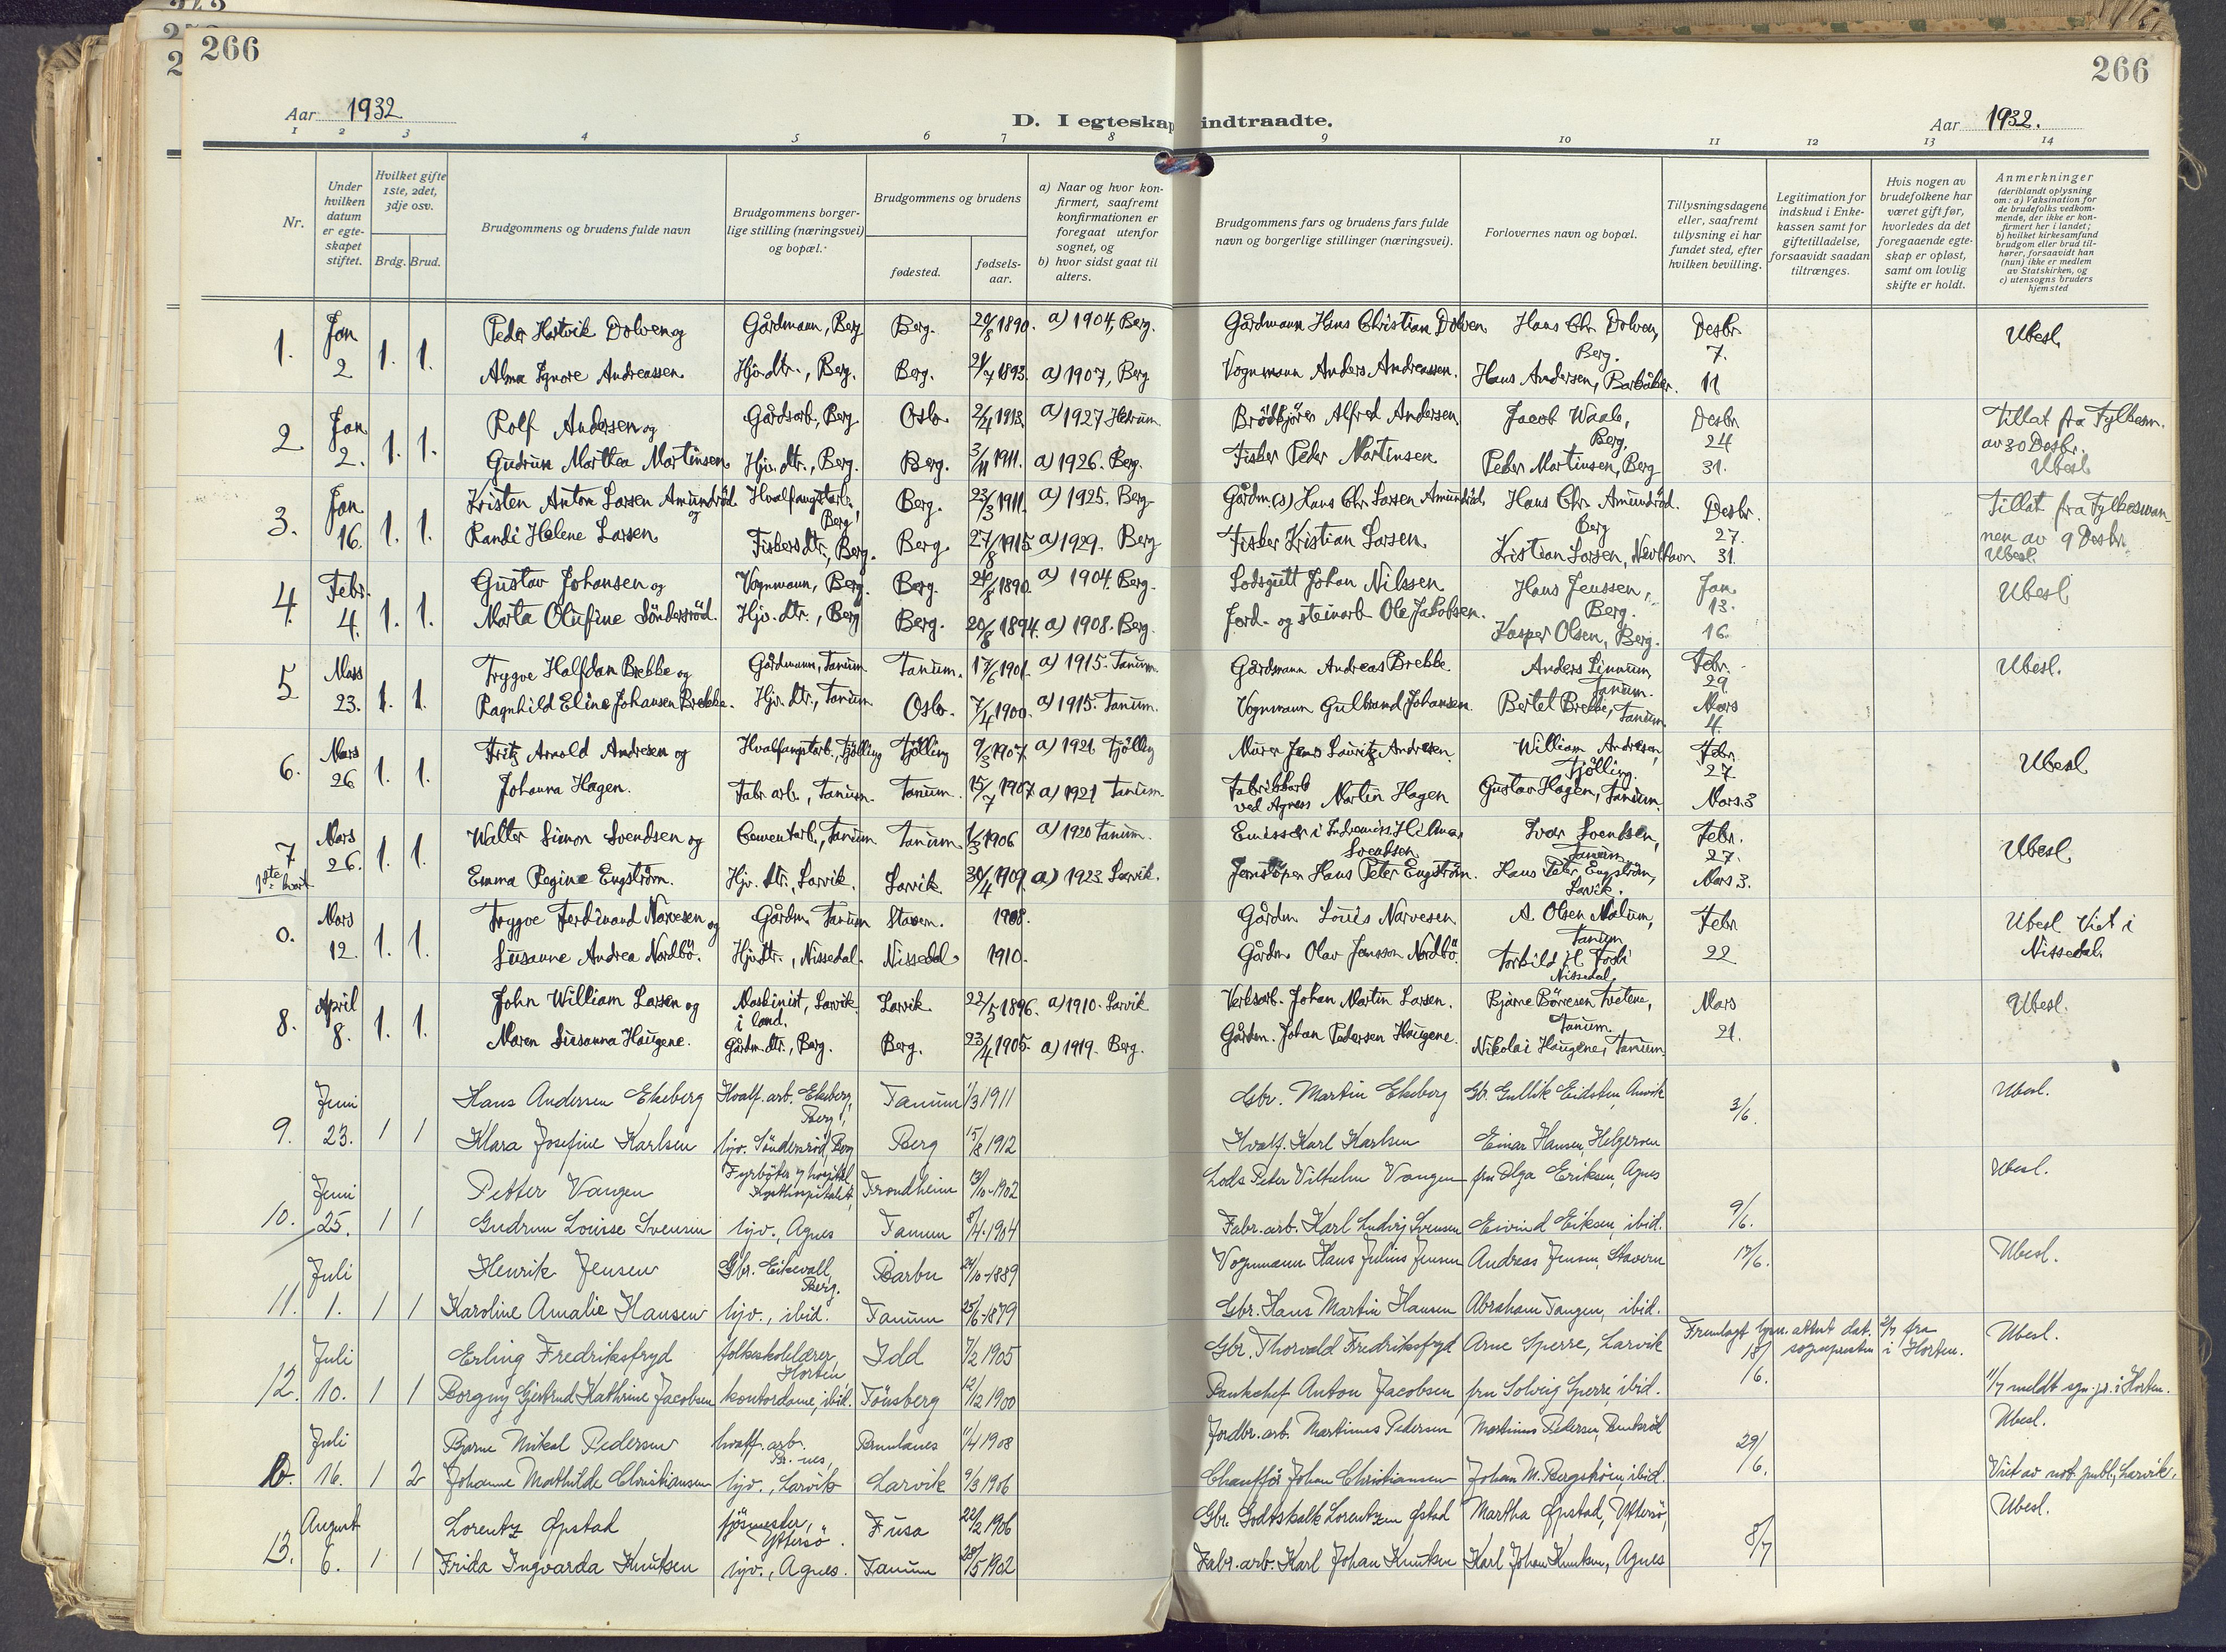 266
266
Aar 1932
D. I egteskap indtraadte.
Aar 1932.
1 2 3 4 5 6 7 8 9 10 11 12 13 14
Nr.
Under hvilken datum er egte-skapet stiftet.
Hvilket gifte 1ste, 2det, 3dje osv.
Brdg. Brud.
Brudgommens og brudens fulde navn
Brudgommens borger-lige stilling (næringsvei) og bopæl.
Brudgommens og brudens
fødested.
fødsels-aar.
a) Naar og hvor kon-firmert, saafremt konfirmationen er foregaat utenfor sognet, og
b) hvor sidst gaat til alters.
Brudgommens fars og brudens fars fulde navn og borgerlige stillinger (næringsvei).
Forlovernes navn og bopæl.
Tillysningsdagene eller, saafremt tillysning ei har fundet sted, efter hvilken bevilling.
Legitimation for indskud i Enke-kassen samt for giftetilladelse, forsaavidt saadan tiltrænges.
Hvis nogen av brudefolkene har været gift før, hvorledes da det foregaaende egte-skap er opløst, samt om lovlig skifte er holdt.
Anmerkninger
(deriblandt oplysning om: a) Vaksination for de brudefolks vedkom-mende, der ikke er kon-firmert her i landet; b) hvilket kirkesamfund brudgom eller brud til-hører, forsaavidt han (hun) ikke er medlem av Statskirken, og c) utensogns bruders hjemsted
1. Jan 2 1. 1. Peder Hartvik Dolven og Gårdmann, Berg Berg. 20/8 1890. a) 1904, Berg. Gårdmann Hans Christian Dolven Hans Chr. Dolven, Berg. Desbr. 7. Ubesl
Alma Signore Andreassen Hjv. dtr., Berg. Berg. 21/7 1893. a) 1907, Berg Vognmann Anders Andreassen. Hans Andersen, Barbåker. 11
2 Jan 2. 1. 1. Rolf Andersen og Gårdsarb., Berg Oslo 2/4 1913. a) 1927 Hedrum Brödkjörer Alfred Andersen Jacob Waale, Berg. Desbr 24 Tillat fra Fylkesm. av 30 Desbr.
Gudrun Marthea Martinsen Hjv. dtr., Berg. Berg. 3/11 1911. a) 1926. Berg. Fisker Peder Martinsen Peder Martinsen, Berg 31. Ubesl
3. Jan 16. 1. 1. Kristen Anton Larsen Amundröd og Hvalfangstarb., Berg Berg. 23/3 1911. a) 1925. Berg Gårdm. (s) Hans Chr. Larsen Amundröd Hans Chr. Amundröd. Berg Desbr. 27. Tillat fra Fylkesman-
Randi Helene Larsen Fiskers dtr., Berg. Berg. 27/8 1915 a) 1929. Berg Fisker Kristian Larsen. Kristian Larsen, Nevlhavn 31. nen av 9 Desbr. Ubesl.
4. Febr. 4. 1. 1. Gustav Johansen og Vognmann, Berg. Berg. 24/8 1890. a) 1904. Berg. Losgutt Johan Nilssen Hans Jenssen, Berg. Jan 13. Ubesl
Marta Olufine Söndersröd. Hjv. dtr., Berg Berg. 20/8 1894. a) 1908. Berg. Jord- og steinarb Ole Jakobsen. Kasper Olsen, Berg. 16.
5 Mars 23. 1. 1. Trygve Halfdan Brekke og Gårdmann, Tanum Tanum. 17/6 1901. a) 1915. Tanum Gårdmann Andreas Brekke. Anders Linnum, Tanum. Febr. 29 Ubesl.
Ragnhild Eline Johansen Brekke. Hjv. dtr., Tanum Oslo. 7/4 1900. a) 1915. Tanum. Vognmann Gulbrand Johansen. Bertel Brekke, Tanum Mars 4.
6. Mars 26 1. 1. Fritz Arnold Andresen og Hvalfangstarb., Tjölling Tjölling 9/3 1907. a) 1921 Tjölling Murer Jens Lauritz Andresen. William Andresen, Tjölling. Febr. 27 Ubesl
Johanna Hagen. Fabr. arb., Tanum. Tanum. 15/7 1907 a) 1921 Tanum. Fabrikkarb ved Agnes Martin Hagen Gustav Hagen, Tanum. Mars 3
7 1ste kvart. Mars 26. 1. 1. Walter Simon Svendsen og Cementarb., Tanum Tanum. 1/3 1906 a) 1920 Tanum. Emissær i Indremis. Hilmar Svendsen Ivar Svendsen, Tanum. Febr. 27. Ubesl
Emma Regine Engström. Hjv. dtr., Larvik. Larvik. 30/4 1909. a) 1923 Larvik. Jernstöper Hans Peter Engström. Hans Peter Engström, Larvik. Mars 3.
0. Mars 12. 1. 1. Trygve Ferdinand Narvesen og Gårdm. Tanum Stavern. 1908. Gårdm. Louis Narvesen A. Olsen Malum, Tanum Febr 22 Ubesl Viet i
Susanne Andrea Nordbö. Hjv. dtr., Nissedal. Nissedal. 1910. Gårdm Olav Jensson Nordbö. Nissedal. Nissedal.
8. April 8. 1. 1. John William Larsen og Maskinist, Larvik i land. Larvik. 22/5 1896. a) 1910. Larvik Verksarb. Johan Martin Larsen. Bjarne Börresen Tvetene, Tanum. Mars 21. Ubesl.
Maren Susanna Haugene. Gårdm. dtr., Berg. Berg. 23/4 1905. a) 1919. Berg. Gårdm. Johan Pedersen Haugene. Nikolai Haugene, Tanum
9. Juni 23. 1 1 Hans Andersen Ekeberg Hvalf. arb. Ekeberg, Berg, Tanum 1/3 1911 Gbr. Martin Ekeberg Gullik Eidsten 3/6. Ubesl.
Klara Josefine Karlsen hjv. Söndersröd, Berg Berg 15/8 1912 Hvalf. Karl Karlsen Einar Hansen, Helgeroen
10. Juni 25. 1 1 Petter Vangen Fyrböter Trondheim 13/10-1902 Lods Peter Vilhelm Vangen fru Olga Eriksen, Agnes 9/6. Ubesl.
Gudrun Louise Svensen hjv., Agnes Tanum 8/4-1904 Fabr. arb. Karl Ludvig Svensen Eivind Eiksen, ibid.
11. Juli 1. 1 1 Henrik Jensen Gbr. Eikevall, Berg. Barbu 24/10-1889 Vognmann Hans Julius Jensen Andreas Jensen, Stavern 17/6. Ubesl.
Karoline Amalie Hansen hjv., ibid. Tanum 25/6-1879 Gbr. Hans Martin Hansen Abraham Tangen, ibid.
12. Juli 10. 1 1 Erling Fredriksfryd folkeskolelærer, Horten, Idd 7/2 1905 Gbr. Thorvald Fredriksfryd Arne Sperre, Larvik Fremlagt lysn. attest dat. 2/7 fra sognepresten i Horten. 18/6. Ubesl.
Borgny Gjertrud Kathrine Jacobsen kontordame, ibid. Tönsberg 12/12 1900 Bankchef Anton Jacobsen fru Solveig Sperre, ibid. 11/7 meldt sgn. pr. i Horten.
0. Juli 16. 1 2 Bjarne Mikal Pedersen hvalf. arb. Br.nes, Brunlanes 11/4 1908 Jordbr. arb. Martinus Pedersen Martinus Pedersen, 29/6. Ubesl.
Johanne Mathilde Christiansen hjv., Larvik Larvik 9/3 1906 Chauffør Johan Christiansen Johan M. Bergström, ibid. Viet av not. publ., Larvik.
13. August 6. 1 1 Lorentz Opstad fjösmester, Yttersö. Fusa 22/2 1906 Gbr. Godtskalk Lorentzen Opstad Martha Opstad, Yttersö, 8/7 Ubesl.
Frida Ingvarda Knutsen hjv., Agnes. Tanum 28/5 1902 Fabr. arb. Karl Johan Knutsen Karl Johan Knutsen, Agnes